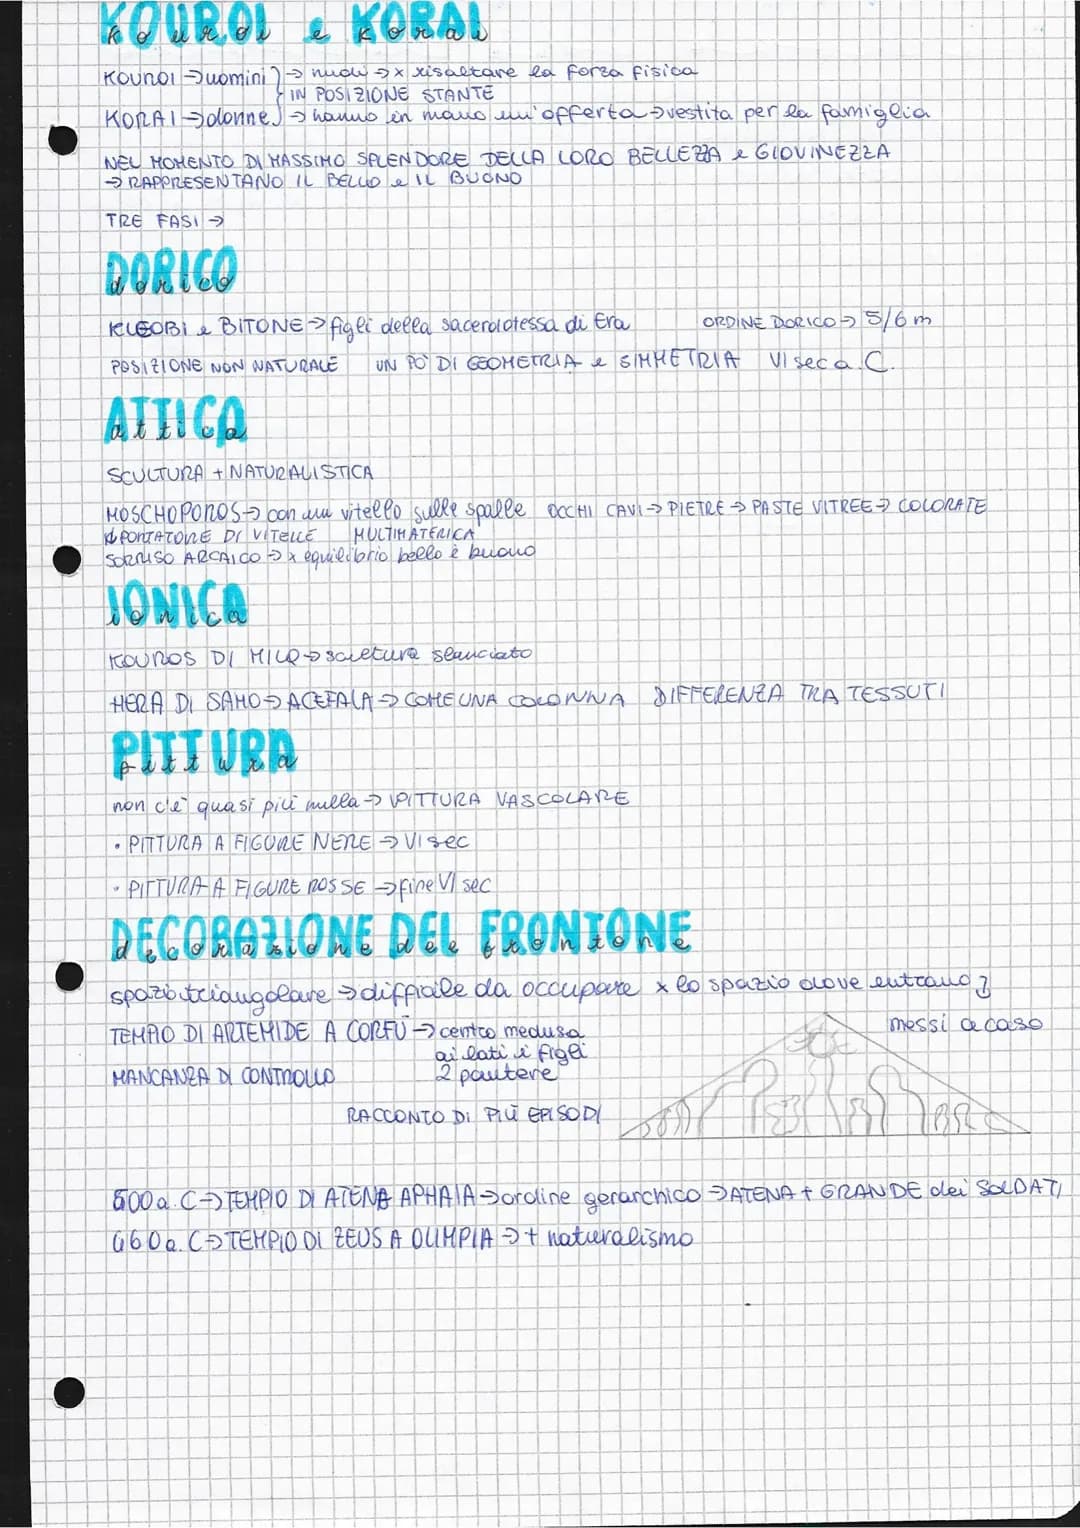 KOUROI e KORAI
KOUROI → uomini → nudi → x risaltare la forza fisica
IN POSIZIONE STANTE
KORAI → donne → hanno in mano un'offerta → vestita per la famiglia
NEL MOMENTO DI MASSIMO SPLENDORE DELLA LORO BELLEZZA e GIOVINEZZA
→ RAPPRESENTANO IL BELLO e IL BUONO
TRE FASI →
DORICO
dorico
KLEOBI e BITONE → figli della sacerdotessa di Era ORDINE DORICO → 5/6 m
POSIZIONE NON NATURALE UN PO' DI GEOMETRIA e SIMMETRIA VI sec a.C.
ATTICA
attica
SCULTURA + NATURALISTICA
MOSCHOPOROS → con un vitello sulle spalle OCCHI CAVI → PIETRE → PASTE VITREE → COLORATE
PORTATORE DI VITELLE MULTIMATERICA
SORRISO ARCAICO → x equilibrio bello è buono
IONICA
ionica
KOUROS DI MILO → scultura slanciato
HERA DI SAMO → ACEFALA → COME UNA COLONNA DIFFERENZA TRA TESSUTI
PITTURA
pittura
non c'è quasi più nulla → PITTURA VASCOLARE
• PITTURA A FIGURE NERE → VI sec
• PITTURA A FIGURE ROSSE → fine VI sec
DECORAZIONE DEL FRONTONE
decorazione del frontone
spazio triangolare → difficile da occupare x lo spazio dove entrano
messi a caso
TEMPIO DI ARTEMIDE A CORFÙ → centro medusa
ai lati i figli
MANCANZA DI CONTROLLO 2 pantere
RACCONTO DI PIÙ EPISODI
500 a.C → TEMPIO DI ATENA APHAIA → ordine gerarchico → ATENA + GRANDE dei SOLDATI
460 a.C → TEMPIO DI ZEUS A OLIMPIA → + naturalismo